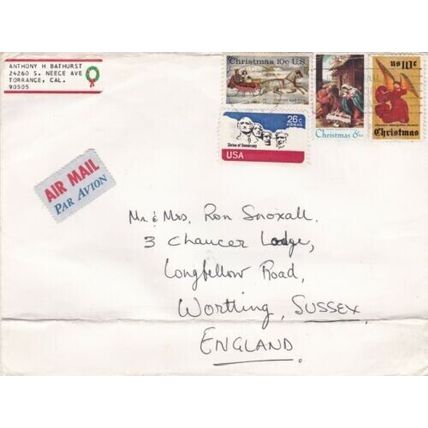 ANTHONY H BATHURST
24260 S. NEECE AVE
TORRANCE, CAL.
90505
Christmas 10c U.S.
Christmas 6c
US 10c
Christmas
26c
Shrine of Democracy
USA
AIR MAIL
PAR AVION
Mr. & Mrs. Ron Snoxall.
3 Chaucer Lodge,
Longfellow Road,
Worthing, SUSSEX,
ENGLAND.